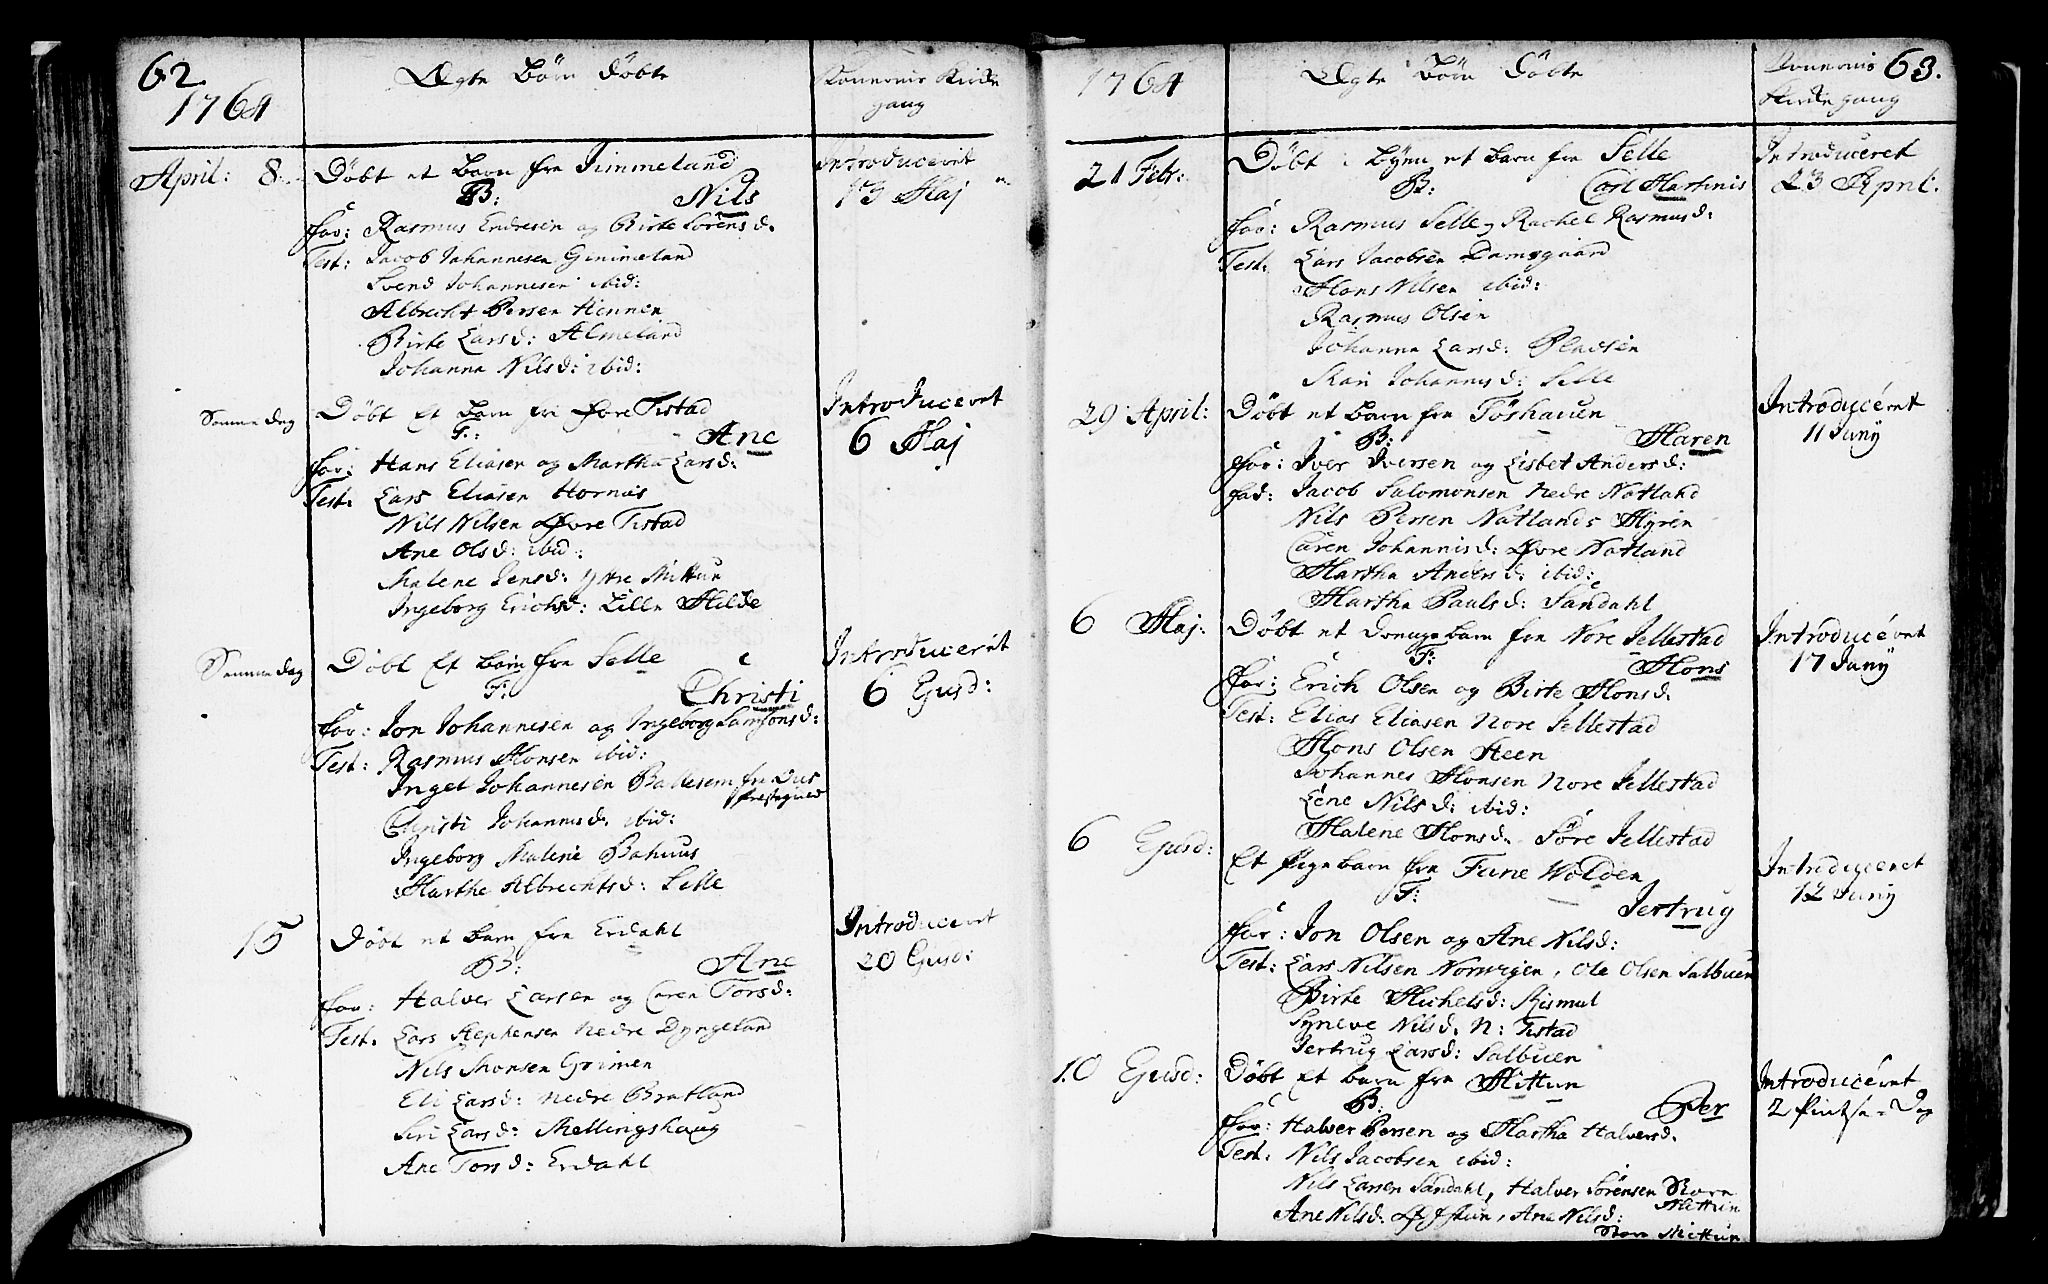 62.
1764
Ægte Børn Døbte
Konernis Kirke
gang
April: 8.
Døbt et barn fra Gimmeland
B: Nils
For: Rasmus Endresen og Birte Sørensd.
Test: Jacob Johannesen Gimmeland
Svend Johannesen ibid:
Albrecht Persen Hinnen
Birte Larsd: Almeland
Johanna Nilsd: ibid:
Introduceret
13 Maj
Samme dag
Døbt Et barn fra Øvre Tistad
F: Ane
For: Hans Eliasen og Martha Larsd:
Test: Lars Eliasen Hornis
Nils Nilsen Øvre Tistad
Ane Olsd: ibid:
Malene Jensd: Yttre Mittun
Ingeborg Erichsd: Lille Milde
Introduceret
6 Maj
Samme dag
Døbt Et barn fra Selle
F: Christi
For: Jon Johannesen og Ingeborg Samsonsd:
Test: Rasmus Monsen ibid:
Inget Johannesen Ballesem fra Dus
Prestegield
Christi Johannisd. ibid:
Ingeborg Malene Bahuus
Marthe Albrechtsd: Selle
Introduceret
6 Ejusd:
15
Døbt et barn fra Erdahl
B: Ane
For: Halver Larsen og Caren Torsd:
Test. Lars Stephensen Nedre Dyngeland
Nils Monsen Grimen
Eli Larsd: Nedre Bratland
Siri Larsd: Mellingshaug
Ane Torsd: Erdahl
Introduceret
20 Ejusd:
1764
Ægte Børn Døbte
Konernis
Kirkegang
63.
21 Febr:
Døbt i Byen et barn fra Selle
B: Carl Martinis
For: Rasmus Selle, Rachel Rasmusd:
Test. Lars Jacobsen Damsgaard
Mons Nilsen ibid:
Rasmus Olsen
Johanna Larsd: Pladsen
Kari Johannisd: Selle
Introduceret
23 April.
29 April:
Døbt et barn fra Töshauen
B: Maren
For: Iver Iversen og Lisbet Andersd:
fad: Jacob Salomonsen Nedre Natland
Nils Persen Natlands Myren
Caren Johannisd: Øvre Natland
Martha Andersd: ibid:
Martha Paulsd: Sandahl
Introducéret
11 Juny
6 Maj:
Døbt et Drenge barn fra Nore Jellestad
F: Mons
For: Erich Olsen og Birte Monsd.
Test: Elias Eliasen Nore Jellestad
Mons Olsen Steen
Johannes Monsen Nore Jellestad
Lene Nilsd: ibid:
Malene Monsd. Søre Jellestad
Introducéret
17 Juny
6 Ejusd:
Et Pigebarn fra Fane Wolden
F: Jertrug
For: Jon Olsen og Ane Nilsd:
Test: Lars Nilsen Norwigen, Ole Olsen Salbuen
Birte Michelsd: Rismul
Syneve Nilsd. N: Tistad
Jertrug Larsd: Salbuen
Introduceret
12 Juny
10 Ejusd:
Døbt Et barn fra Mittun
B: Per
For: Halver Persen og Martha Halversd.
Test. Nils Jacobsen ibid:
Nils Larsen Sandahl, Halver Sørensen Store
Mittun
Ane Nilsd: ibid:, Ane Nilsd:
Store Mittun
Introducéret
2 Pintse-Dag